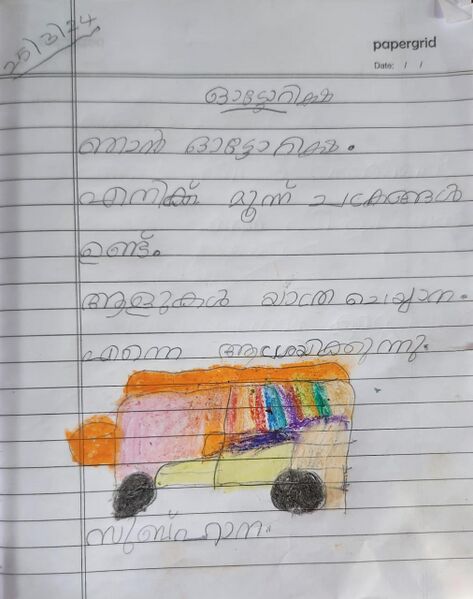 25/3/24
papergrid
Date: / /
ഓട്ടോറിക്ഷ
ഞാൻ ഓട്ടോറിക്ഷ.
എനിക്ക് മൂന്ന് ചക്രങ്ങൾ
ഉണ്ട്.
ആളുകൾ യാത്ര ചെയ്യാന.
എന്നെ ആശ്രയിക്കുന്നു.
സുബ്ഹാന.